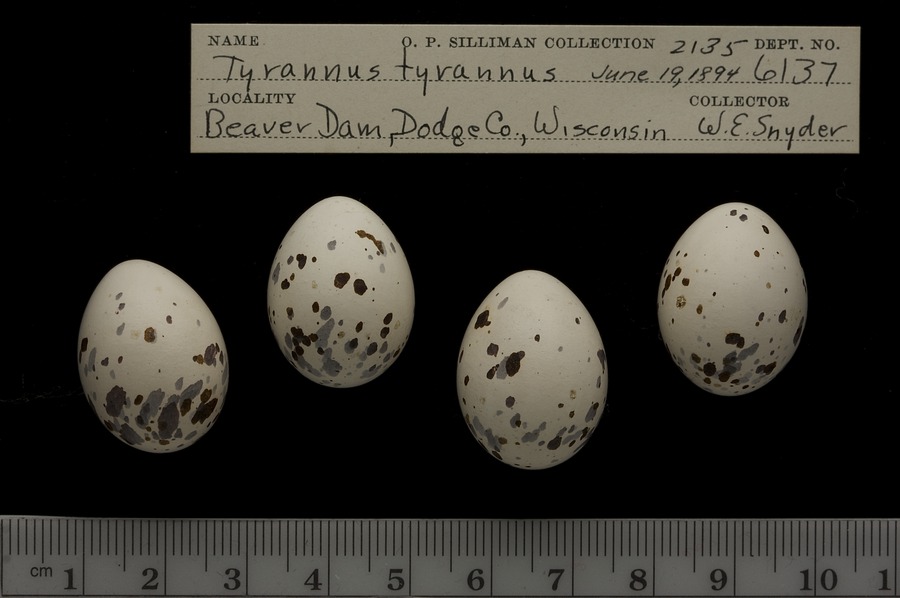 NAME O. P. SILLIMAN COLLECTION 2135 DEPT. NO.
Tyrannus tyrannus June 19, 1894 6137
LOCALITY COLLECTOR
Beaver Dam, Dodge Co., Wisconsin W. E. Snyder
cm 1 2 3 4 5 6 7 8 9 10 1